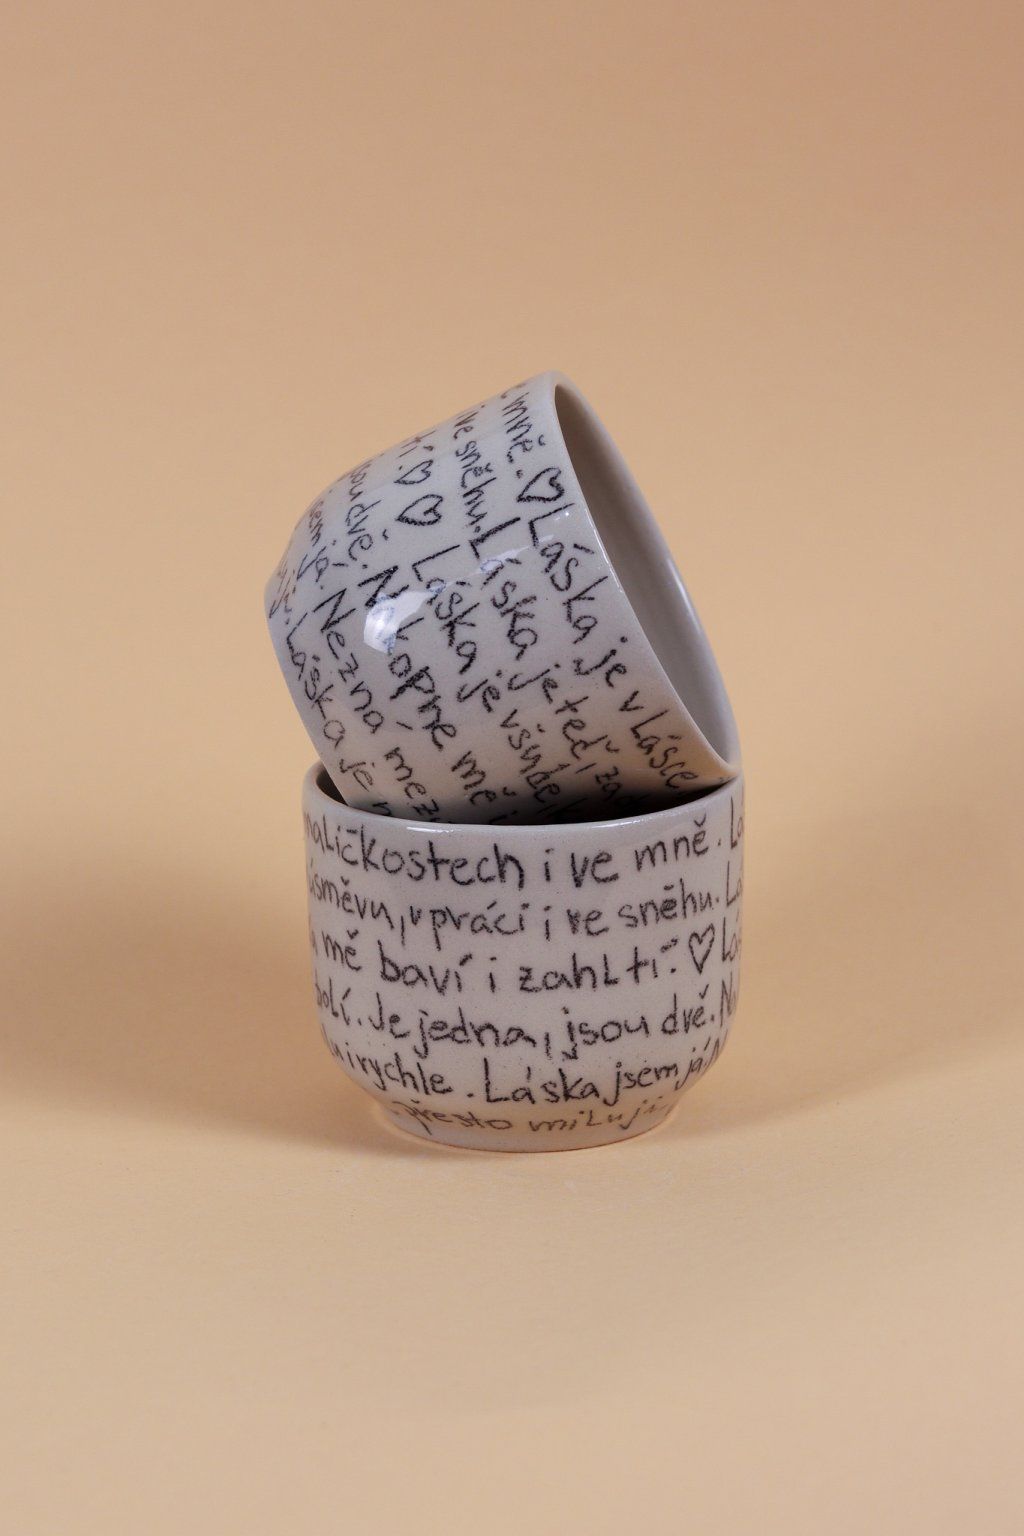 mně. ♡ Láska je v Lásce
i ve sněhu. Láska je teď,
♡ ♡ Láska je všude,
jsou dvě. Nakopne mě i
jsem já. Nezná mez
Láska je
maličkostech i ve mně.
úsměvu, v práci i ve sněhu.
mě baví i zahltí. ♡
bolí. Je jedna, jsou dvě.
i rychle. Láska jsem já.
přesto miluji,